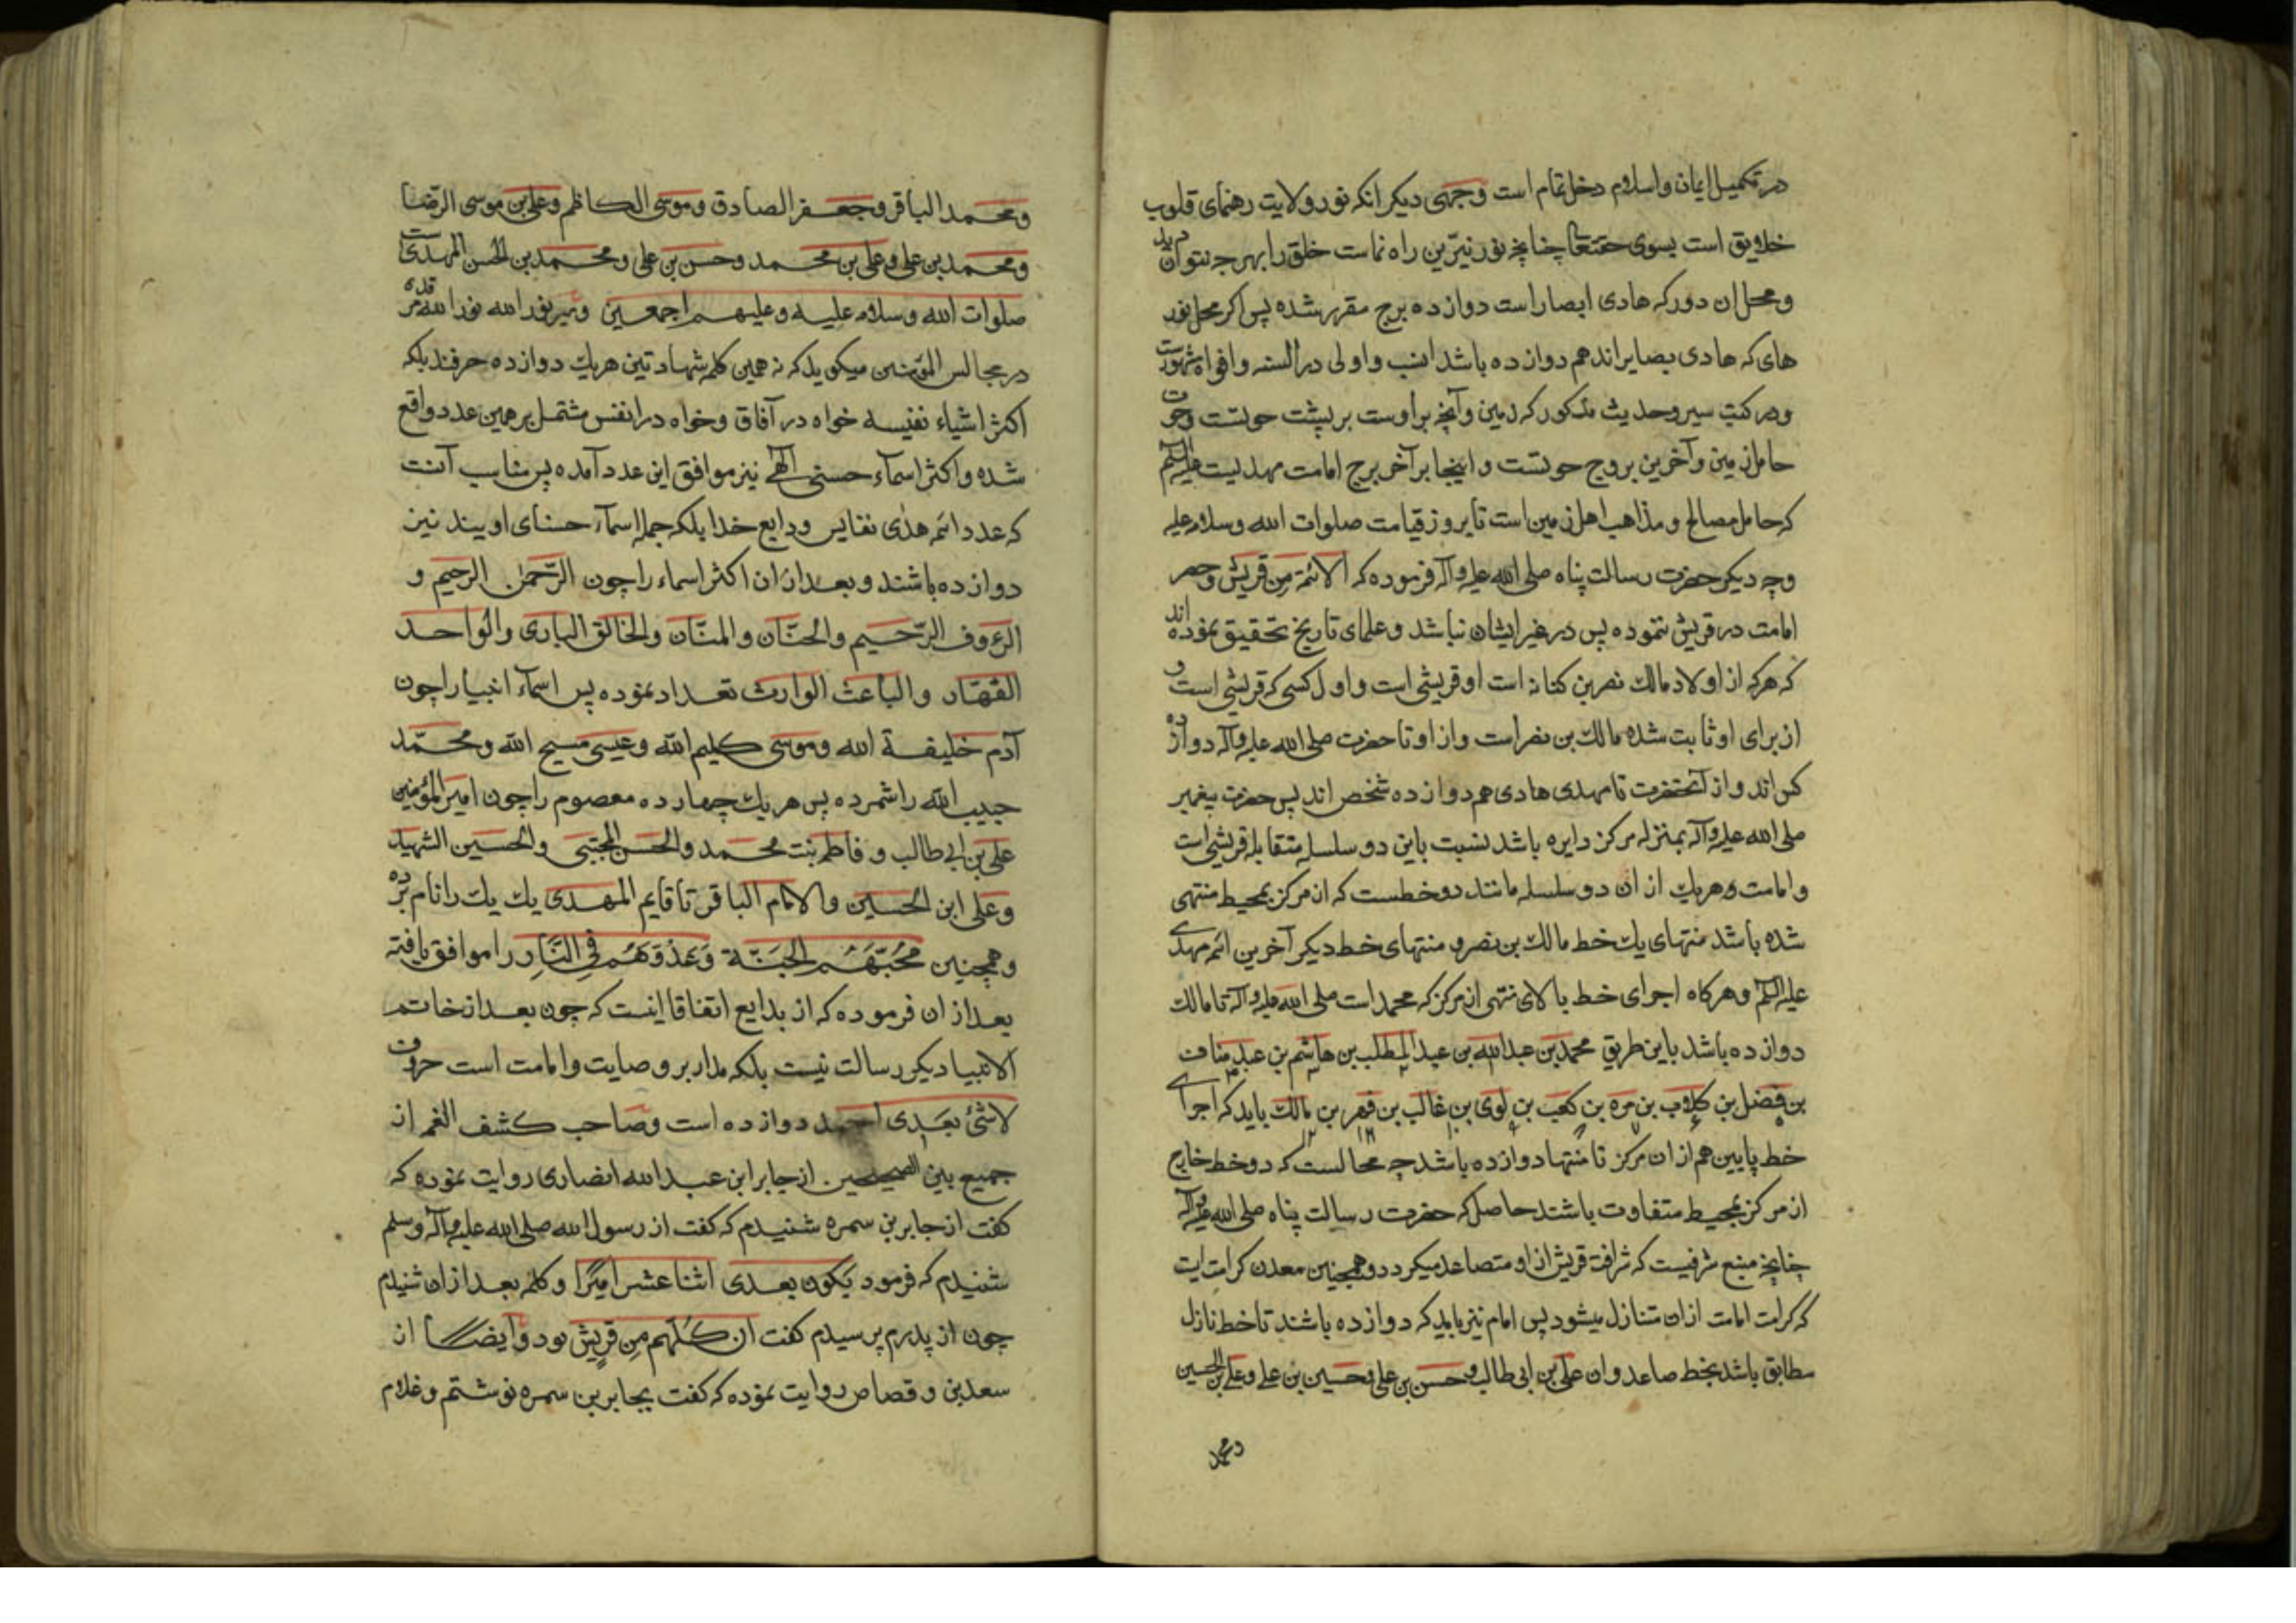 در تکمیل ایمان واسلام دخل تمام است وجهی دیکر انکه نور ولایت رهنمای قلوب
خلایق است بسوی حقتعا چنانچه نور نیّرین راه نماست خلق را بهر جه نتوان دید
ومحل ان دور که هادی ابصار است دوازده برج مقرر شده پس اکر محل نور
های که هادی بصایراند هم دوازده باشد انسب واولی در السنه وافواه مشهورست
ودر کتب سیر وحدیث مذکور که زمین وآنچه براوست بر پشت حوتست وحوت
حامل زمین وآخرین بروج حوتست واینجا برآخر برج امامت مهدیست علیه السلم
که حامل مصالح ومذاهب اهل زمین است تا بروز قیامت صلوات الله وسلامه علیه
وجه دیکر حضرت رسالت پناه صلی الله علیه وآله فرموده که الائمة من قریش وحصر
امامت در قریش نموده پس در غیر ایشان نباشد وعلمای تاریخ تحقیق نموده اند
که هرکه از اولاد مالك نضر بن کنانه است او قریشی است واول کسی که قریشی است و
از برای او ثابت شده مالك بن نضر است واز او تا حضرت صلی الله علیه وآله دوازده
کس اند واز آنحضرت تا مهدی هادی هم دوازده شخص اند پس حضرت پیغمبر
صلی الله علیه وآله بمنزله مرکز دایره باشد نسبت باین دو سلسله متقابله قریشی است
وامامت وهریك از ان دو سلسله مانند دو خطست که از مرکز بمحیط منتهی
شده باشد منتهای یك خط مالك بن نضر و منتهای خط دیکر آخرین ائمه مهدی
علیه السلم وهرکاه اجرای خط بالای منتهی از مرکز که محمد است صلی الله علیه وآله تا مالك
دوازده باشد باین طریق محمد بن عبدالله بن عبد المطلب بن هاشم بن عبد مناف
بن فضل بن کلاب بن مره بن کعب بن لوی بن غالب بن فهر بن مالك باید که اجرای
خط پایین هم از ان مرکز تا منتها دوازده باشد چه محالست که دو خط خارج
از مرکز بمحیط متفاوت باشند حاصل که حضرت رسالت پناه صلی الله علیه وآله
چنانچه منبع شرفیست که شرافت قریش از او متصاعد میکردد وهمچنین معدن کرامت ایت
که کرامت امامت ازان متنازل میشود پس امام نیز باید که دوازده باشند تا خط نازل
مطابق باشد بخط صاعد وان علی بن ابی طالب وحسن بن علی وحسین بن علی وعلی بن الحسین
ومحمد
ومحمد الباقر وجعفر الصادق وموسی الکاظم وعلی بن موسی الرّضا
ومحمد بن علی وعلی بن محمد وحسن بن علی ومحمد بن الحسن المهدی
صلوات الله وسلامه علیه وعلیهم اجمعین ومیر نور الله نور الله مرقده
در مجالس المؤمنین میکوید که نه همین کلمه شهادتین هریك دوازده حرفند بلکه
اکثر اشیاء نفیسه خواه در آفاق وخواه در انفس مشتمل بر همین عدد واقع
شده واکثر اسمآء حسنی الهی نیز موافق این عدد آمده پس مناسب آنست
که عدد ائمه هدی نفایس ودایع خدا بلکه جمله اسمآء حسنای اویند نیز
دوازده باشند وبعد ازان اکثر اسماء را چون الرّحمن الرحیم و
الرءوف الرّحیم والحنّان والمنّان والخالق الباری والواحد
القهّار والباعث الوارث تعداد نموده پس اسمآء انبیا را چون
آدم خلیفة الله وموسی کلیم الله وعیسی مسیح الله ومحمّد
حبیب الله را شمرده پس هر یك چهارده معصوم را چون امیر المؤمنین
علی بن ابی طالب و فاطمه بنت محمد والحسن المجتبی والحسین الشهید
وعلی ابن الحسین والامام الباقر تا قایم المهدی یك یك را نام برده
وهمچنین مُحُبّهُم الجَنّة وَعدُوّهُم فِی النّارِ را موافق یافته
بعد از ان فرموده که از بدایع اتفاقا اینست که چون بعد از خاتم
الانبیا دیکر رسالت نیست بلکه مدار بر وصایت وامامت است حروف
لاشئ بعدی احمد دوازده است وصاحب کشف الغمه از
جمیع بین الصحیحین از جابر ابن عبد الله انصاری روایت نموده که
کفت از جابر بن سمره شنیدم که کفت از رسول الله صلی الله علیه وآله وسلم
شنیدم که فرمود یکون بعدی اثنا عشر امیرًا وکلمه بعد ازان شنیدم
چون از پدرم پرسیدم کفت ان کلّهم من قریش بود وایضا از
سعد بن وقصاص روایت نموده که کفت بجابر بن سمره نوشتم وغلام